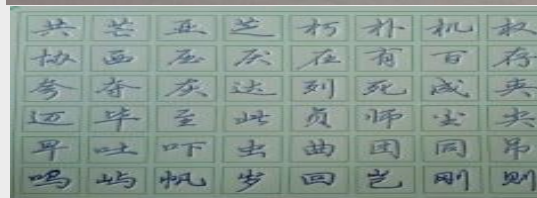 共 芒 亚 芝 朽 朴 机 权
协 西 压 厌 在 有 百 存
夸 夺 灰 达 列 死 成 夹
迈 毕 至 此 贞 师 尘 尖
早 吐 吓 虫 曲 团 同 吊
吗 屿 帆 岁 回 岂 刚 则